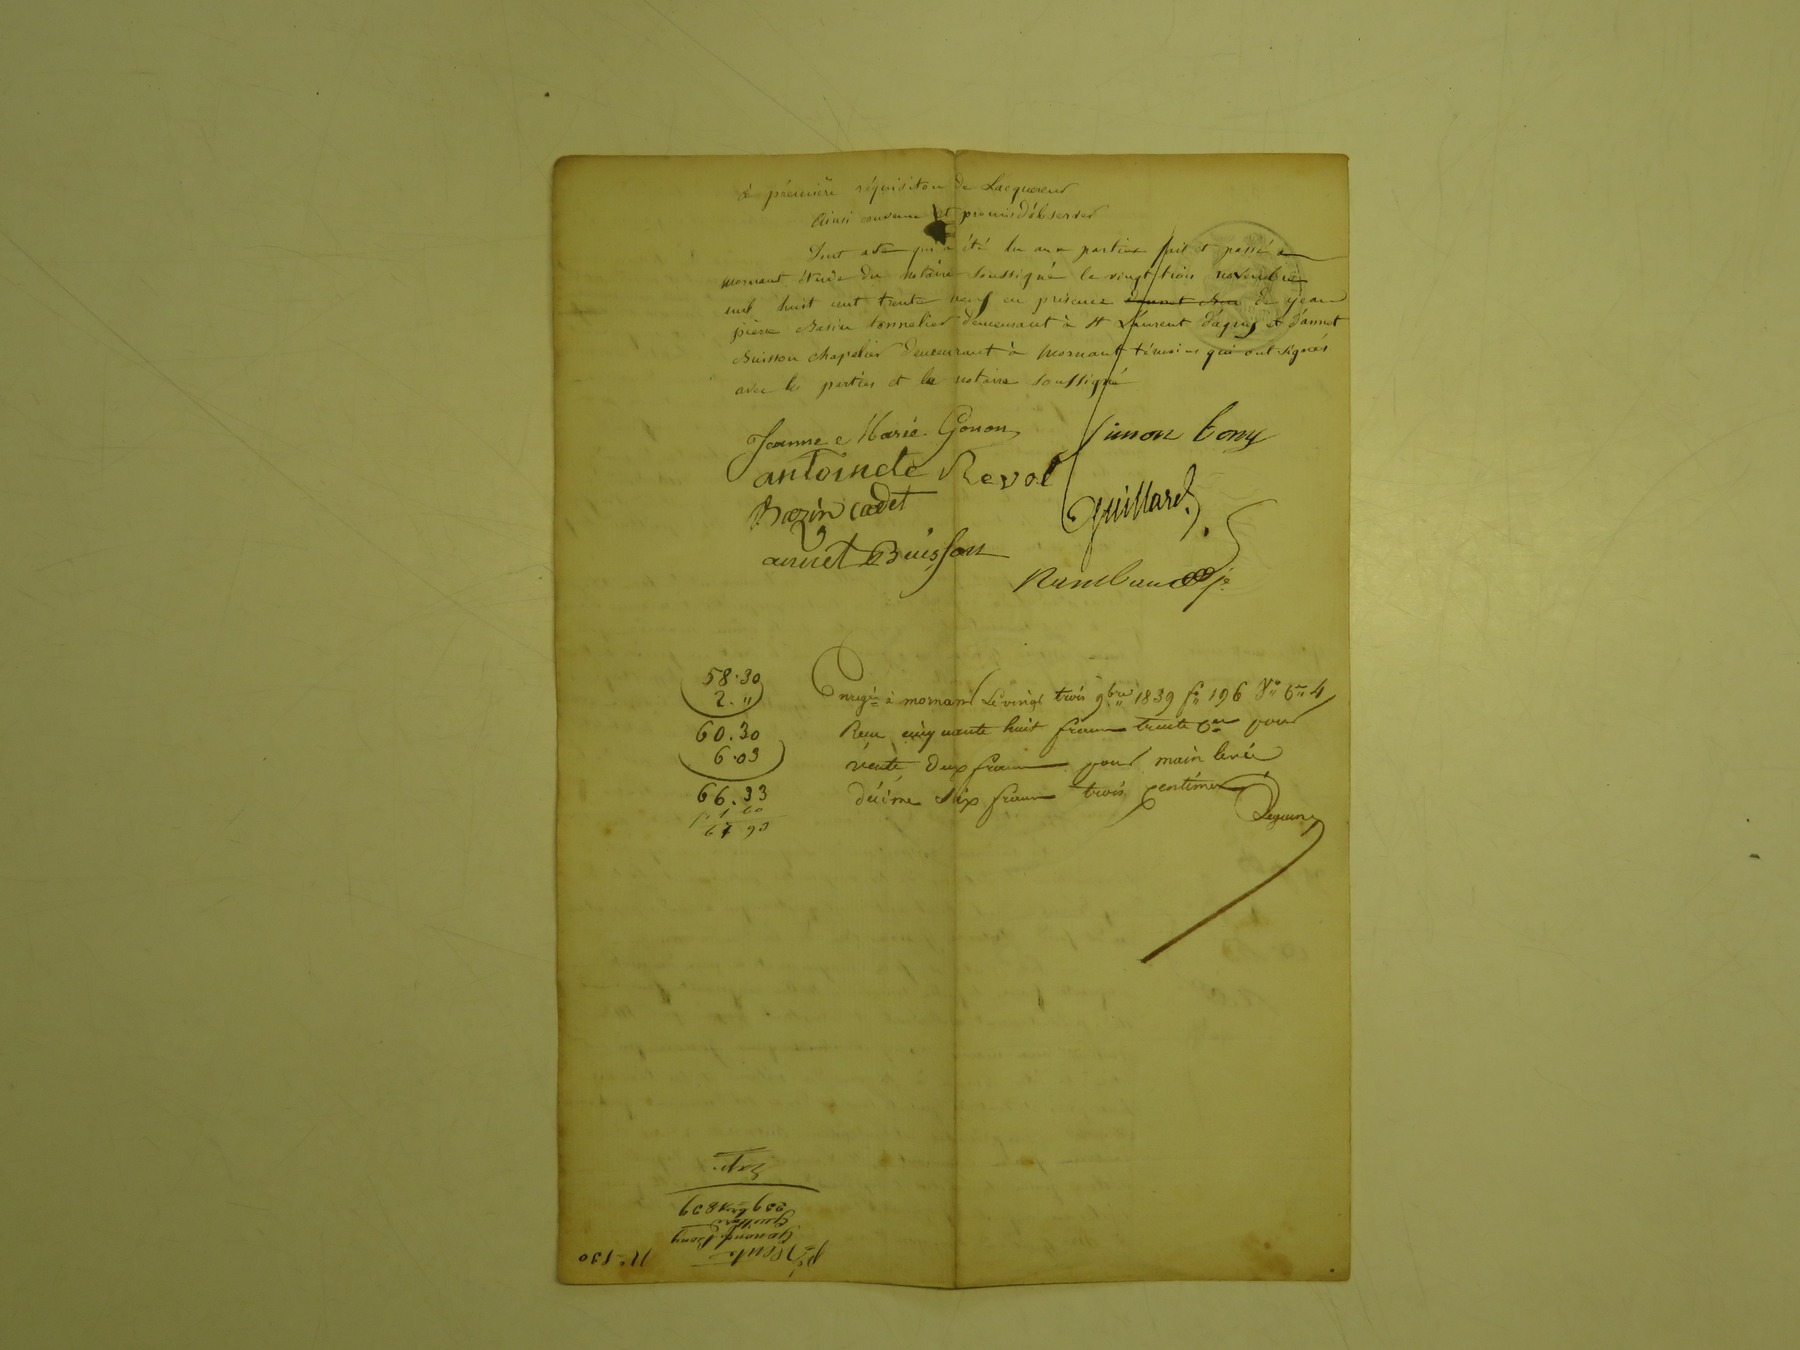 à première réquisition de Lacquereur
Ainsi convenu et promis d'observer
Dont acte qui a été lu aux parties fait et passé a
mornant étude du notaire soussigné le vingt trois novembre
mil huit cent trente neuf en présence de jean
pierre Basin tonnelier demeurant à St Laurent d'agny et d'annet
Buisson chapelier demeurant à Mornant témoins qui ont signés
avec les parties et le notaire soussigné
Jeanne Marie Gonon Simon Bony
antoinete Revol
Guillard
Bazin cadet
annet Buisson
58.30
2. "
60.30
6.03
66.33
1 60
67 93
Enregé à mornant Le vingt trois 9bre 1839 f° 196 V° Ce 4
Reçu cinquante huit francs trente Cen pour
vente deux francs pour main levée
décime six francs trois centimes
N° 530
Vente
Gonon à Bony
Guillard
23 9bre 1839
Exp.